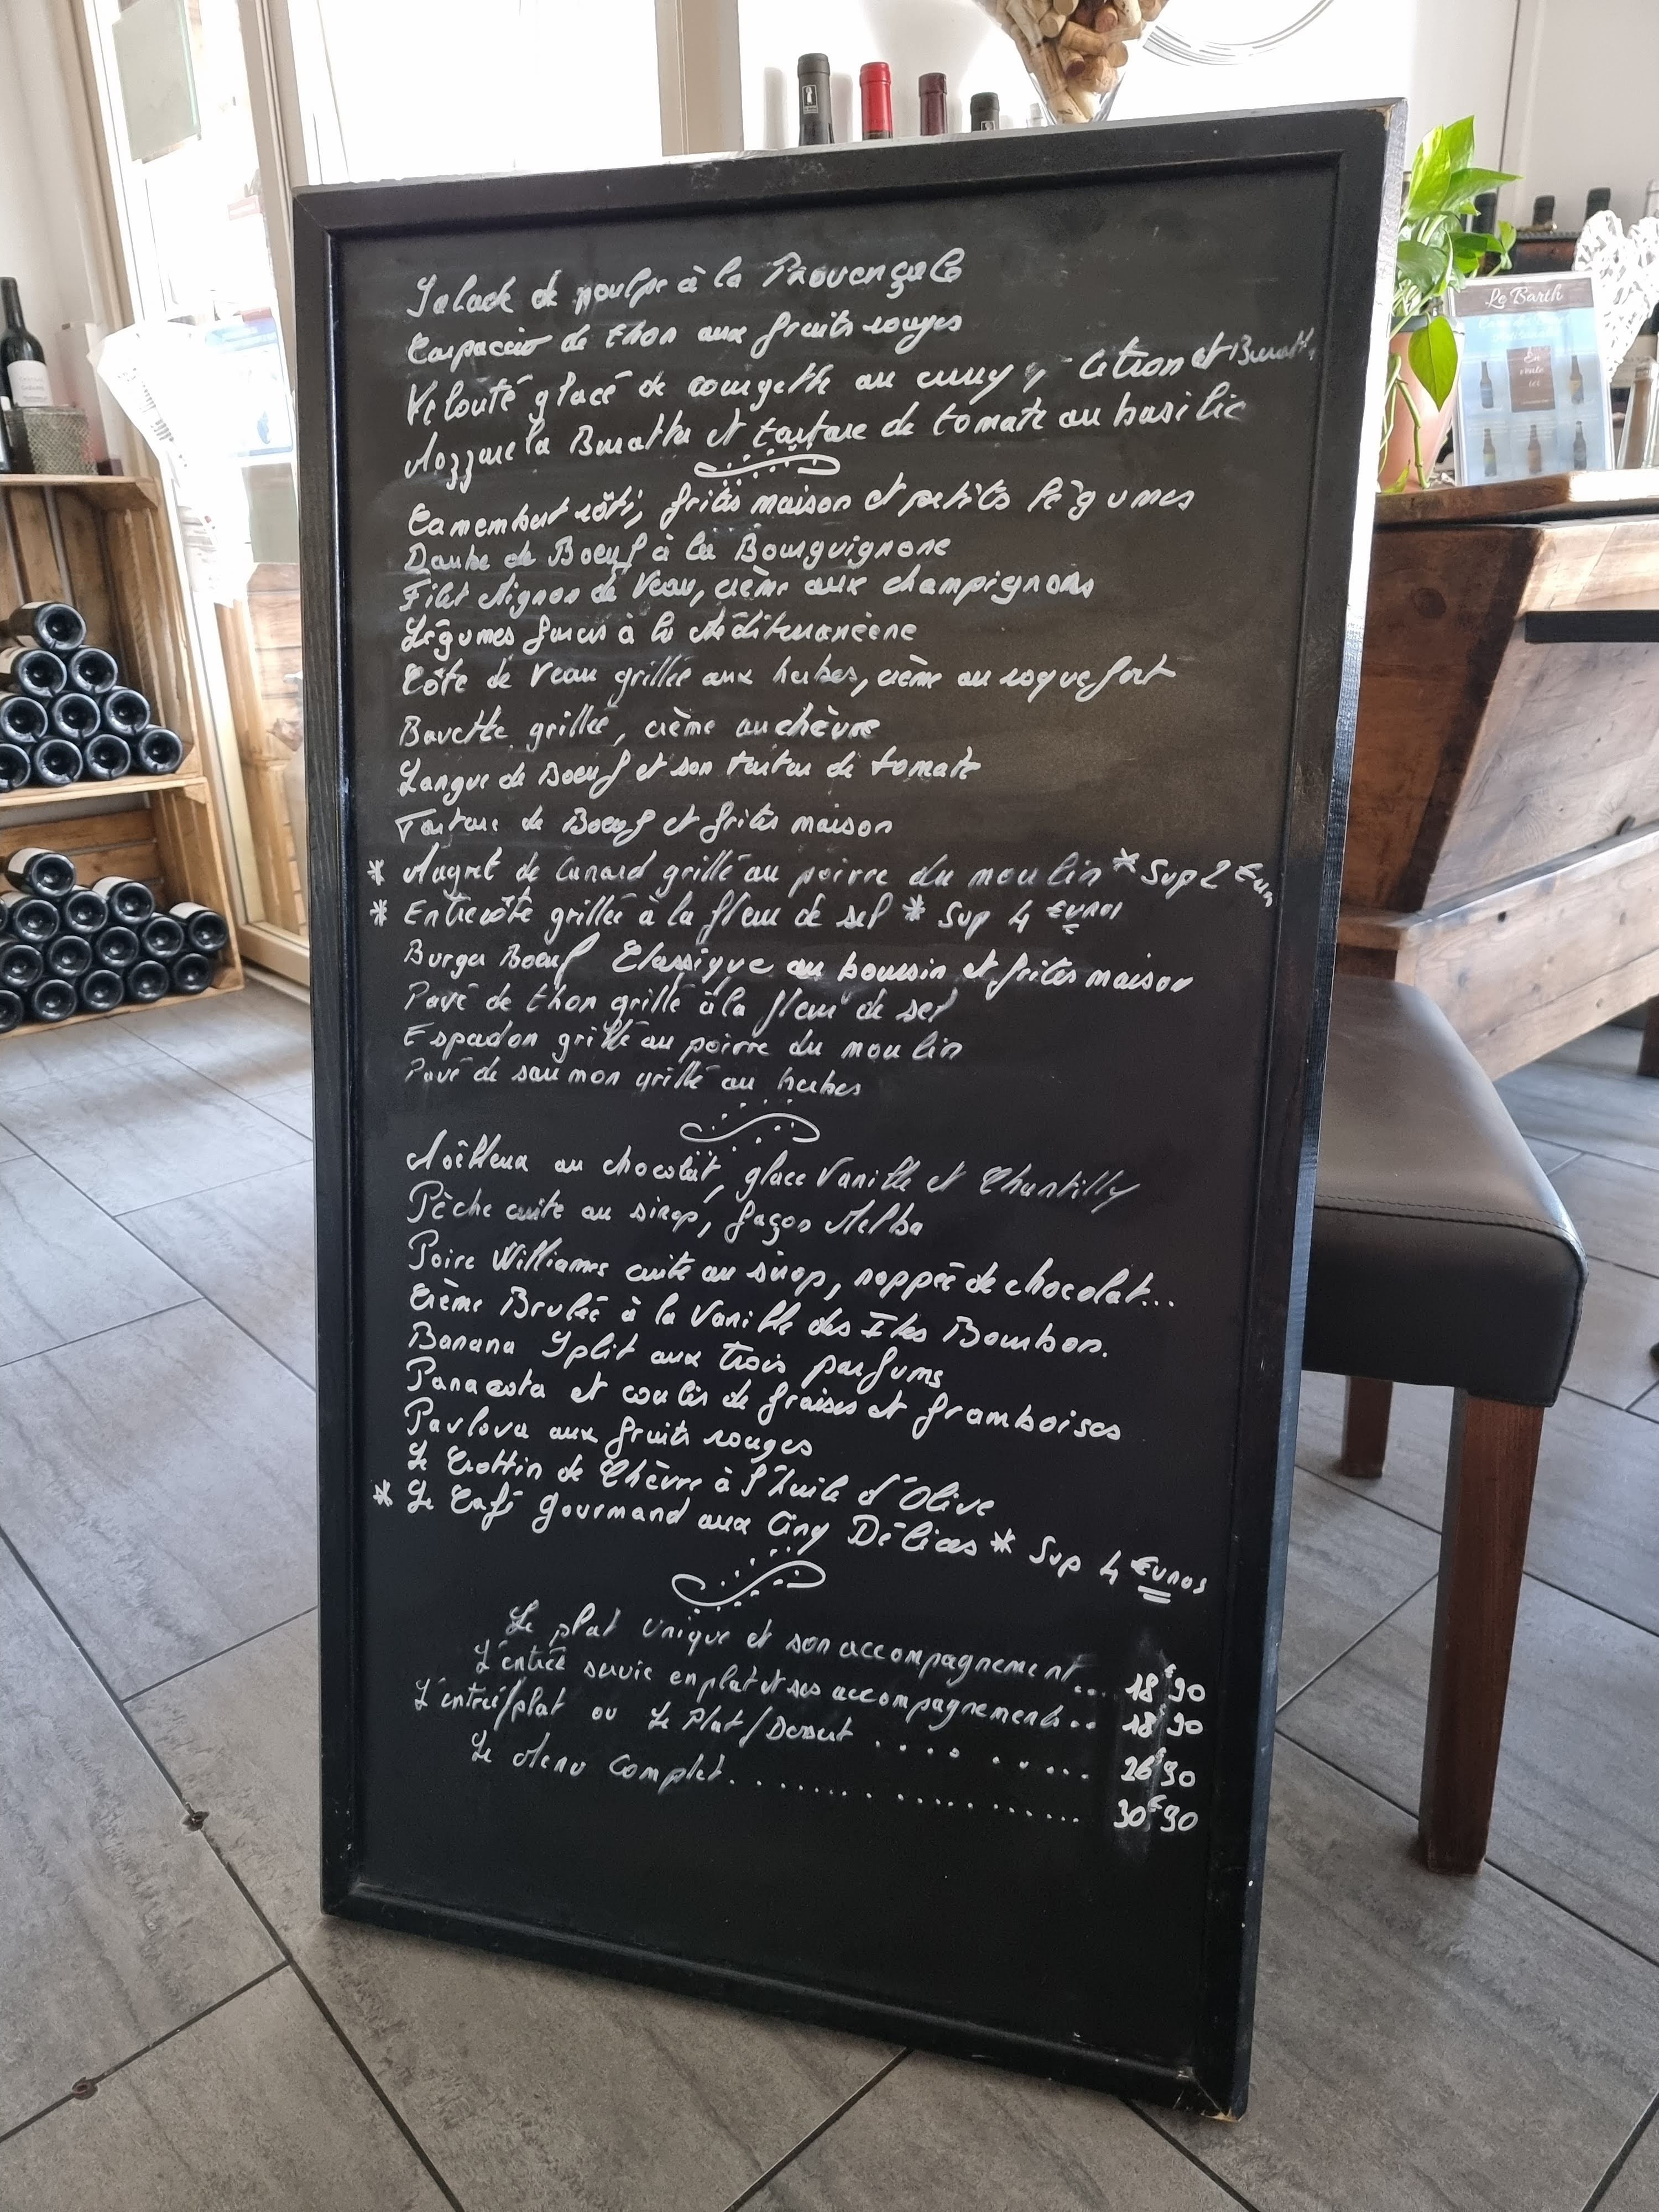 Salade de poulpe à la Provençale
Carpaccio de thon aux fruits rouges
Velouté glacé de courgette au curry, citron et Buratta
Mozzarela Buratta et tartare de tomate au basilic
Camembert rôti, frites maison et petits légumes
Daube de Boeuf à la Bourguignone
Filet Mignon de Veau, crème aux champignons
Légumes farcis à la Méditerranéene
Côte de Veau grillée aux herbes, crème au roquefort
Bavette grillée, crème au chèvre
Langue de Boeuf et son tartar de tomate
Tartare de Boeuf et frites maison
* Magret de Canard grillé au poivre du moulin * Sup 2 Eur
* Entrecôte grillée à la fleur de sel * Sup 4 €uros
Burger Boeuf Classique au boursin et frites maison
Pavé de thon grillé à la fleur de sel
Espadon grillé au poivre du moulin
Pavé de saumon grillé au herbes
Moëlleux au chocolat, glace Vanille et Chantilly
Pèche cuite au sirop, façon Melba
Poire Williams cuite au sirop, noppée de chocolat...
Crème Brulée à la Vanille des Iles Bourbon.
Banana Split aux trois parfums
Panacota et coulis de fraises et framboises
Pavlova aux fruits rouges
Le Crottin de Chèvre à l'huile d'Olive
* Le Café gourmand aux Cinq Délices * Sup 4 €uros
Le plat unique et son accompagnement... 18€90
L'entrée servie en plat et ses accompagnements.. 18€90
L'entrée/plat ou Le Plat/Dessert ........ 26€90
Le Menu Complet.................... 30€90
Le Barth
En vente ici